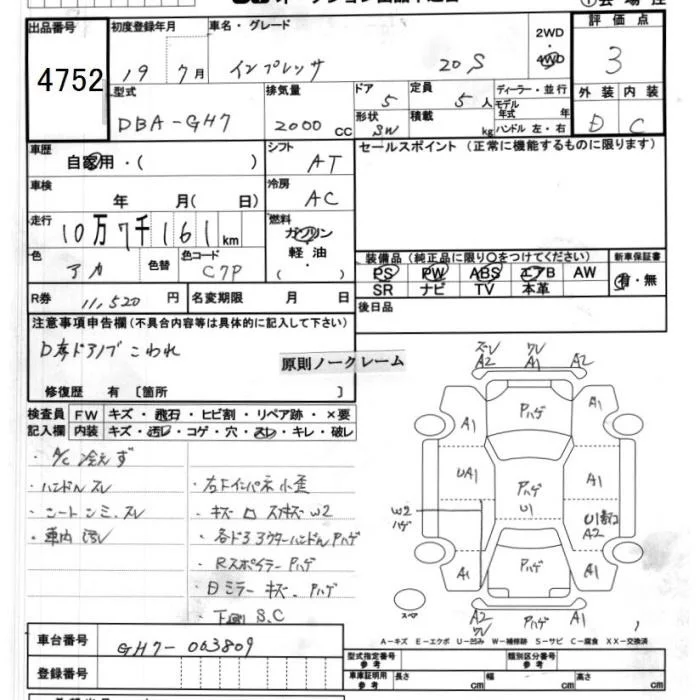 出品番号 初度登録年月 車名・グレード 2WD 評価点
4752 19 7月 インプレッサ 20S ・ 4WD 3
型式 排気量 ドア 定員 ディーラー・並行 外装 内装
DBA-GH7 2000 CC 5 5 人 モデル年式 年 D C
形状 SW 積載 kg ハンドル 左・右
車歴 自家用・( ) シフト AT セールスポイント (正常に機能するものに限ります)
車検 年 月( 日) 冷房 AC
走行 10万7千161km 燃料 ガソリン
軽油
・
( )
色 アカ 色替 色コード C7P
装備品 (純正品に限り〇をつけてください) 新車保証書
PS PW ABS エアB AW 有・無
SR ナビ TV 本革
R券 11,520 円 名変期限 月 日 後日品
注意事項申告欄(不具合内容等は具体的に記入して下さい)
D席ドアノブ こわれ
原則ノークレーム
修復歴 有 〔箇所 〕
検査員 FW キズ・飛石・ヒビ割・リペア跡・×要
記入欄 内装 キズ・汚レ・コゲ・穴・スレ・キレ・破レ
・A/C 冷えず
・ハンドル スレ
・シート シミ、スレ
・車内 汚レ
・右下インパネ 小歪
・各ドア アウターハンドル Pハゲ
・Rスポイラー Pハゲ
・ミラー キズ・Pハゲ
・下廻り S.C
ズレ ワレ
A2 A1 A2
A1 Pハゲ A1
UA1 Pハゲ A1
U1
W2
ハゲ
A2
A1 Pハゲ A1
スペア
A2 Pハゲ A1
ワレ
車台番号 GH7-063809
登録番号
A-キズ E-エクボ U-凹み W-補修跡 S-サビ C-腐食 XX-交換済
型式指定番号 参考 類別区分番号 参考
車庫証明用 参考 長さ cm 幅 cm 高さ cm